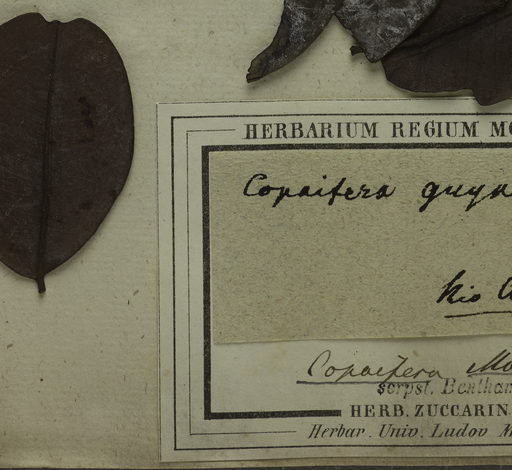 HERBARIUM REGIUM MO
Copaifera guya
Rio
Copaifera Ma
scrpst. Bentham
HERB. ZUCCARIN
Herbar. Univ. Ludov M